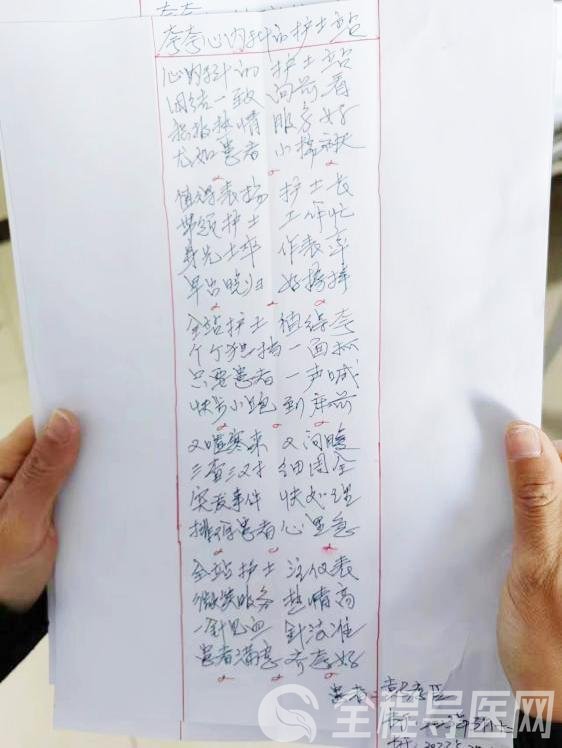 夸夸心内科的护士站
心内科的 护士站
团结一致 向前看
接物热情 服务好
尤如患者 小棉袄
值得表扬 护士长
带领护士 工作忙
身先士卒 作表率
早出晚归 好榜样
全站护士 值得夸
个个独挡一面抓
只要患者 一声喊
快步小跑 到床前
又嘘寒来 又问暖
三查三对 细周全
突发事件 快处理
排评患者 心里急
全站护士 注仪表
微笑服务 热情高
一针见血 针法准
患者满意 齐声好
患者:
全程导医网